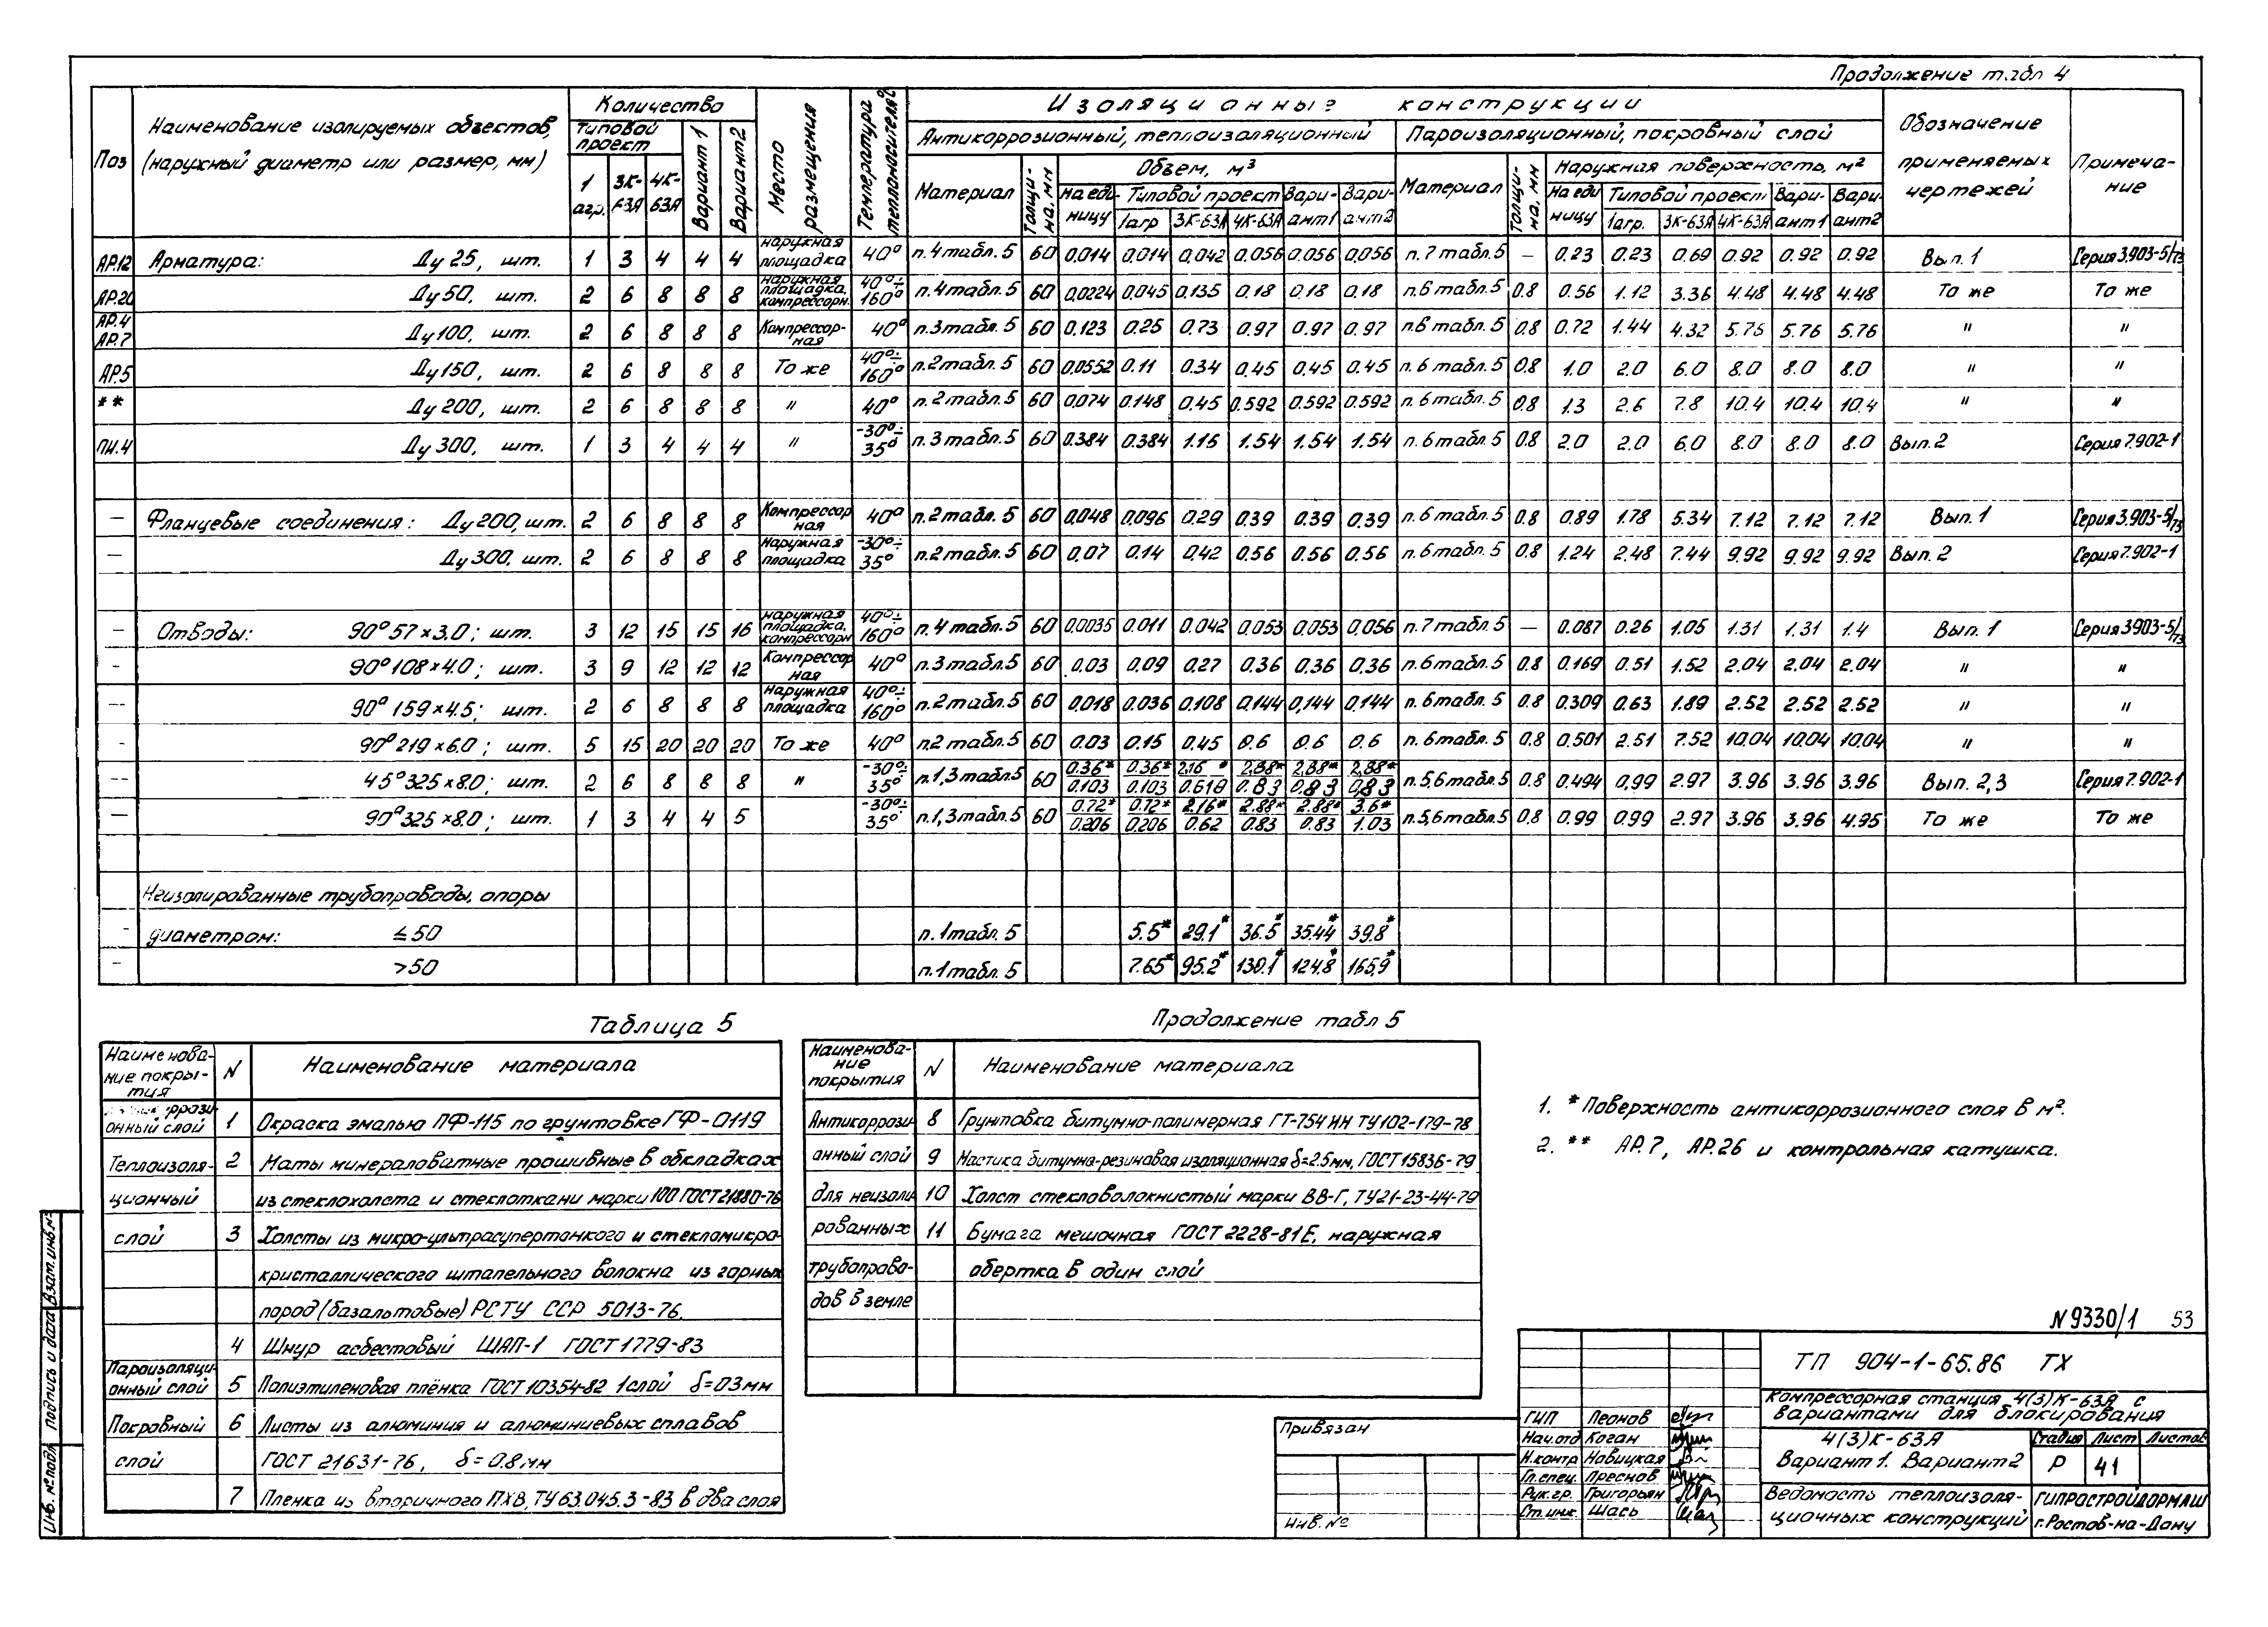 Продолжение табл 4
Поз
Наименование изолируемых объектов, (наружный диаметр или размер, мм)
Количество
Типовой проект
1 агр.
3К-63А
4К-63А
Вариант 1
Вариант 2
Место размещения
Температура теплоносителя °С
Изоляционные конструкции
Антикоррозионный, теплоизоляционный
Пароизоляционный, покровный слой
Материал
Толщина, мм
Объем, м³
На единицу
Типовой проект
1агр 3К-63А 4К-63А
Вариант1
Вариант2
Материал
Толщина, мм
Наружная поверхность, м²
На единицу
Типовой проект
1агр. 3К-63А 4К-63А
Вариант1
Вариант2
Обозначение применяемых чертежей
Примечание
АР.12 Арматура: Ду 25, шт. 1 3 4 4 4 наружная площадка 40° п.4 табл.5 60 0.014 0.014 0.042 0.056 0.056 0.056 п.7 табл.5 — 0.23 0.23 0.69 0.92 0.92 0.92 Вып.1 Серия 3.903-5/73
АР.20 Ду 50, шт. 2 6 8 8 8 наружная площадка, компрессорн. 40°÷160° п.4 табл.5 60 0.0224 0.045 0.135 0.18 0.18 0.18 п.6 табл.5 0.8 0.56 1.12 3.36 4.48 4.48 4.48 То же То же
АР.4 АР.7 Ду 100, шт. 2 6 8 8 8 Компрессорная 40° п.3 табл.5 60 0.123 0.25 0.73 0.97 0.97 0.97 п.6 табл.5 0.8 0.72 1.44 4.32 5.76 5.76 5.76 " "
АР.5 Ду 150, шт. 2 6 8 8 8 То же 40°÷160° п.2 табл.5 60 0.0552 0.11 0.34 0.45 0.45 0.45 п.6 табл.5 0.8 1.0 2.0 6.0 8.0 8.0 8.0 " "
** Ду 200, шт. 2 6 8 8 8 " 40° п.2 табл.5 60 0.074 0.148 0.45 0.592 0.592 0.592 п.6 табл.5 0.8 1.3 2.6 7.8 10.4 10.4 10.4 " "
ПИ.4 Ду 300, шт. 1 3 4 4 4 " -30°÷35° п.3 табл.5 60 0.384 0.384 1.16 1.54 1.54 1.54 п.6 табл.5 0.8 2.0 2.0 6.0 8.0 8.0 8.0 Вып.2 Серия 7.902-1
— Фланцевые соединения: Ду 200, шт. 2 6 8 8 8 Компрессорная 40° п.2 табл.5 60 0.048 0.096 0.29 0.39 0.39 0.39 п.6 табл.5 0.8 0.89 1.78 5.34 7.12 7.12 7.12 Вып.1 Серия 3.903-5/73
— Ду 300, шт. 2 6 8 8 8 Наружная площадка -30°÷35° п.2 табл.5 60 0.07 0.14 0.42 0.56 0.56 0.56 п.6 табл.5 0.8 1.24 2.48 7.44 9.92 9.92 9.92 Вып.2 Серия 7.902-1
— Отводы: 90° 57×3.0; шт. 3 12 15 15 16 наружная площадка, компрессорн 40°÷160° п.4 табл.5 60 0.0035 0.011 0.042 0.053 0.053 0.056 п.7 табл.5 — 0.087 0.26 1.05 1.31 1.31 1.4 Вып.1 Серия 3903-5/73
- 90° 108×4.0; шт. 3 9 12 12 12 Компрессорная 40° п.3 табл.5 60 0.03 0.09 0.27 0.36 0.36 0.36 п.6 табл.5 0.8 0.169 0.51 1.52 2.04 2.04 2.04 " "
— 90° 159×4.5; шт. 2 6 8 8 8 Наружная площадка 40°÷160° п.2 табл.5 60 0.018 0.036 0.108 0.144 0,144 0.144 п.6 табл.5 0.8 0.309 0.63 1.89 2.52 2.52 2.52 " "
- 90° 219×6.0; шт. 5 15 20 20 20 То же 40° п.2 табл.5 60 0.03 0.15 0.45 0.6 0.6 0.6 п.6 табл.5 0.8 0.501 2.51 7.52 10.04 10.04 10.04 " "
— 45° 325×8.0; шт. 2 6 8 8 8 " -30°÷35° п.1,3 табл.5 60 0.36*/0.103 0.36*/0.103 2,16*/0.618 2,88*/0.83 2,88*/0.83 2,88*/0,83 п.5,6 табл.5 0.8 0.494 0.99 2.97 3.96 3.96 3.96 Вып. 2,3 Серия 7.902-1
— 90° 325×8.0; шт. 1 3 4 4 5 -30°÷35° п.1,3 табл.5 60 0.72*/0.206 0.72*/0.206 2.16*/0.62 2.88*/0.83 2.88*/0.83 3.6*/1.03 п.5,6 табл.5 0.8 0.99 0.99 2.97 3.96 3.96 4.95 То же То же
- Неизолированные трубопроводы, опоры
- диаметром: ≤50 п.1 табл.5 5.5* 29.1* 36.5* 35.44* 39.8*
- >50 п.1 табл.5 7.65* 95.2* 130.1* 124.8* 165.9*
Таблица 5
Наименование покрытия N Наименование материала
Антикоррозионный слой 1 Окраска эмалью ПФ-115 по грунтовке ГФ-0119
Теплоизоля- 2 Маты минераловатные прошивные в обкладках
ционный из стеклохолста и стеклоткани марки 100 ГОСТ 21880-76
слой 3 Холсты из микро-ультрасупертонкого и стекломикро-
кристаллического штапельного волокна из горных
пород (базальтовые) РСТУ ССР 5013-76.
4 Шнур асбестовый ШАП-1 ГОСТ 1779-83
Пароизоляционный слой 5 Полиэтиленовая плёнка ГОСТ 10354-82 1слой δ=0.3мм
Покровный 6 Листы из алюминия и алюминиевых сплавов
слой ГОСТ 21631-76, δ=0.8мм
7 Пленка из вторичного ПХВ, ТУ 63.045.3-83 в два слоя
Продолжение табл 5
Наименование покрытия N Наименование материала
Антикоррози- 8 Грунтовка битумно-полимерная ГТ-754 ИН ТУ102-179-78
онный слой 9 Мастика битумно-резиновая изоляционная δ=2.5мм, ГОСТ 15836-79
для неизоли- 10 Холст стекловолокнистый марки ВВ-Г, ТУ21-23-44-79
рованных 11 Бумага мешочная ГОСТ 2228-81Е, наружная
трубопрово- обертка в один слой
дов в земле
1. * Поверхность антикоррозионного слоя в м².
2. ** АР.7, АР.26 и контрольная катушка.
N 9330/1 53
ТП 904-1-65.86 ТХ
Компрессорная станция 4(3)К-63А с
вариантами для блокирования
4(3)К-63А
Вариант 1. Вариант 2
Стадия Лист Листов
Р 41
Ведомость теплоизоля-
ционных конструкций
ГИПРОСТРОЙДОРМАШ
г.Ростов-на-Дону
ГИП Леонов
Нач.отд Коган
Н.контр Новицкая
Гл.спец. Преснов
Рук.гр. Григорьян
Ст.инж. Шась
Привязан
Инв.№
Взам.инв.№
Подпись и дата
Инв.№подл